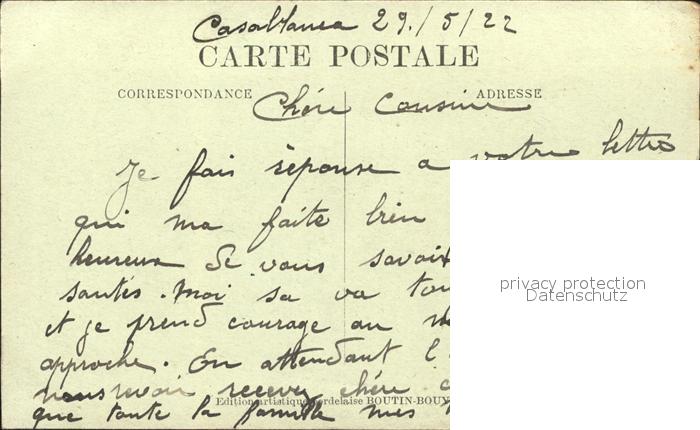 Casablanca 29./5/22
CARTE POSTALE
CORRESPONDANCE
ADRESSE
Chére Cousine
Je fais réponse a votre lettre
qui ma faite bien
heureux de vous savoir
santés. Moi sa va tou
et je prend courage au
approche. En attendant l
nous revoir recevez chére c
que toute la famille mes
Edition artistique Bordelaise BOUTIN-BOUY
privacy protection
Datenschutz